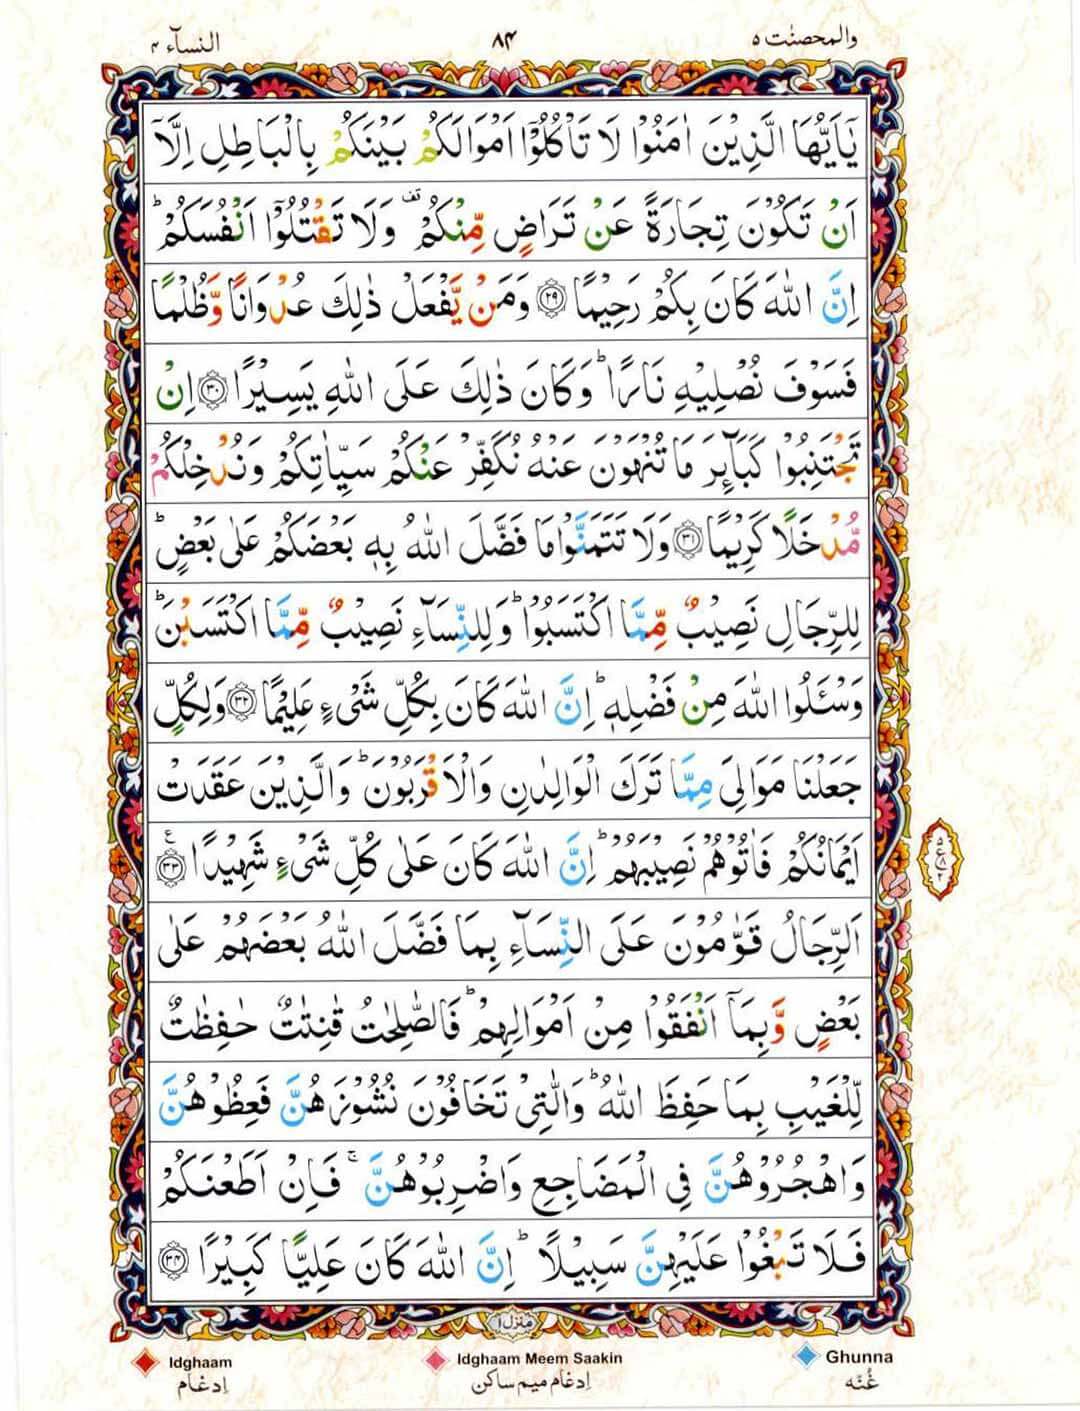 والمحصنٰت ۵
۸۴
النسآء ۴
يٰۤاَيُّهَا الَّذِيْنَ اٰمَنُوْا لَا تَاْكُلُوْۤا اَمْوَالَكُمْ بَيْنَكُمْ بِالْبَاطِلِ اِلَّاۤ
اَنْ تَكُوْنَ تِجَارَةً عَنْ تَرَاضٍ مِّنْكُمْ ۟ قف وَلَا تَقْتُلُوْۤا اَنْفُسَكُمْ ؕ
اِنَّ اللّٰهَ كَانَ بِكُمْ رَحِيْمًا ﴿۲۹﴾ وَمَنْ يَّفْعَلْ ذٰلِكَ عُدْوَانًا وَّظُلْمًا
فَسَوْفَ نُصْلِيْهِ نَارًا ؕ وَكَانَ ذٰلِكَ عَلَى اللّٰهِ يَسِيْرًا ﴿۳۰﴾ اِنْ
تَجْتَنِبُوْا كَبَآئِرَ مَا تُنْهَوْنَ عَنْهُ نُكَفِّرْ عَنْكُمْ سَيِّاٰتِكُمْ وَنُدْخِلْكُمْ
مُّدْخَلًا كَرِيْمًا ﴿۳۱﴾ وَلَا تَتَمَنَّوْا مَا فَضَّلَ اللّٰهُ بِهٖ بَعْضَكُمْ عَلٰى بَعْضٍ ؕ
لِلرِّجَالِ نَصِيْبٌ مِّمَّا اكْتَسَبُوْا ؕ وَلِلنِّسَآءِ نَصِيْبٌ مِّمَّا اكْتَسَبْنَ ؕ
وَسْـَٔلُوا اللّٰهَ مِنْ فَضْلِهٖ ؕ اِنَّ اللّٰهَ كَانَ بِكُلِّ شَيْءٍ عَلِيْمًا ﴿۳۲﴾ وَلِكُلٍّ
جَعَلْنَا مَوَالِيَ مِمَّا تَرَكَ الْوَالِدٰنِ وَالْاَقْرَبُوْنَ ؕ وَالَّذِيْنَ عَقَدَتْ
اَيْمَانُكُمْ فَاٰتُوْهُمْ نَصِيْبَهُمْ ؕ اِنَّ اللّٰهَ كَانَ عَلٰى كُلِّ شَيْءٍ شَهِيْدًا ﴿۳۳﴾ ع
اَلرِّجَالُ قَوّٰمُوْنَ عَلَى النِّسَآءِ بِمَا فَضَّلَ اللّٰهُ بَعْضَهُمْ عَلٰى
بَعْضٍ وَّبِمَاۤ اَنْفَقُوْا مِنْ اَمْوَالِهِمْ ؕ فَالصّٰلِحٰتُ قٰنِتٰتٌ حٰفِظٰتٌ
لِّلْغَيْبِ بِمَا حَفِظَ اللّٰهُ ؕ وَالّٰتِيْ تَخَافُوْنَ نُشُوْزَهُنَّ فَعِظُوْهُنَّ
وَاهْجُرُوْهُنَّ فِي الْمَضَاجِعِ وَاضْرِبُوْهُنَّ ۚ فَاِنْ اَطَعْنَكُمْ
فَلَا تَبْغُوْا عَلَيْهِنَّ سَبِيْلًا ؕ اِنَّ اللّٰهَ كَانَ عَلِيًّا كَبِيْرًا ﴿۳۴﴾
منزل ۱
Idghaam
Idghaam Meem Saakin
Ghunna
اِدغام
اِدغام میم ساکن
غُنّه